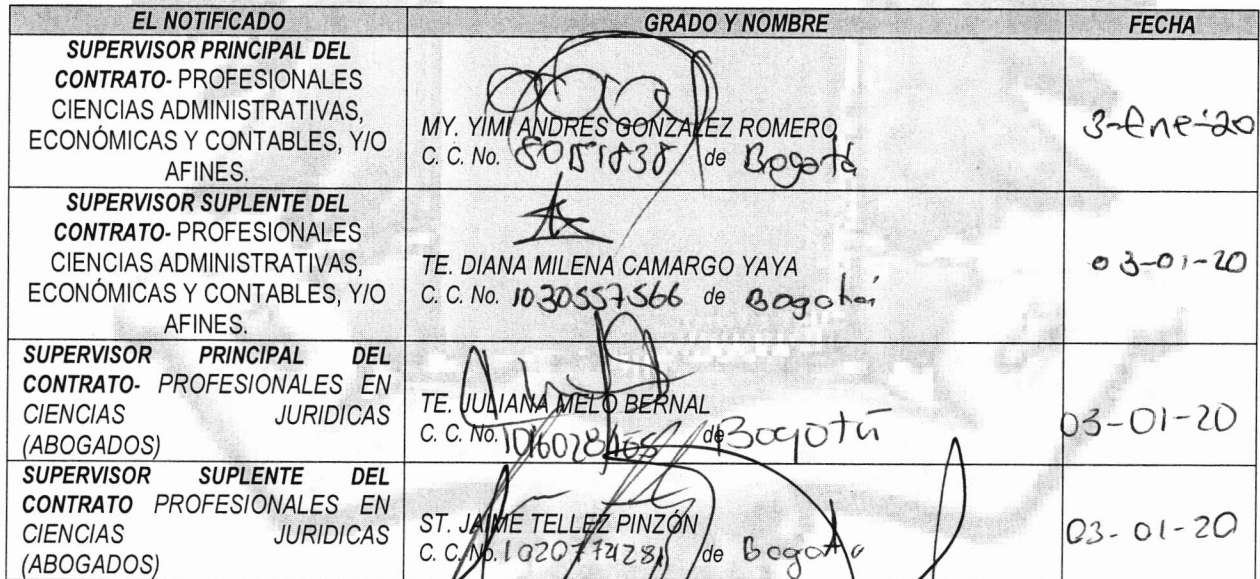 EL NOTIFICADO GRADO Y NOMBRE FECHA
SUPERVISOR PRINCIPAL DEL
CONTRATO- PROFESIONALES
CIENCIAS ADMINISTRATIVAS,
ECONÓMICAS Y CONTABLES, Y/O
AFINES.
MY. YIMI ANDRES GONZALEZ ROMERO
C. C. No. 80151838 de Bogotá
3-Ene-20
SUPERVISOR SUPLENTE DEL
CONTRATO- PROFESIONALES
CIENCIAS ADMINISTRATIVAS,
ECONÓMICAS Y CONTABLES, Y/O
AFINES.
TE. DIANA MILENA CAMARGO YAYA
C. C. No. 1030557566 de Bogotá
03-01-20
SUPERVISOR PRINCIPAL DEL
CONTRATO- PROFESIONALES EN
CIENCIAS JURIDICAS
(ABOGADOS)
TE. JULIANA MELO BERNAL
C. C. No. de Bogotá
03-01-20
SUPERVISOR SUPLENTE DEL
CONTRATO PROFESIONALES EN
CIENCIAS JURIDICAS
(ABOGADOS)
ST. JAIME TELLEZ PINZÓN
C. C. No. de Bogota
03-01-20